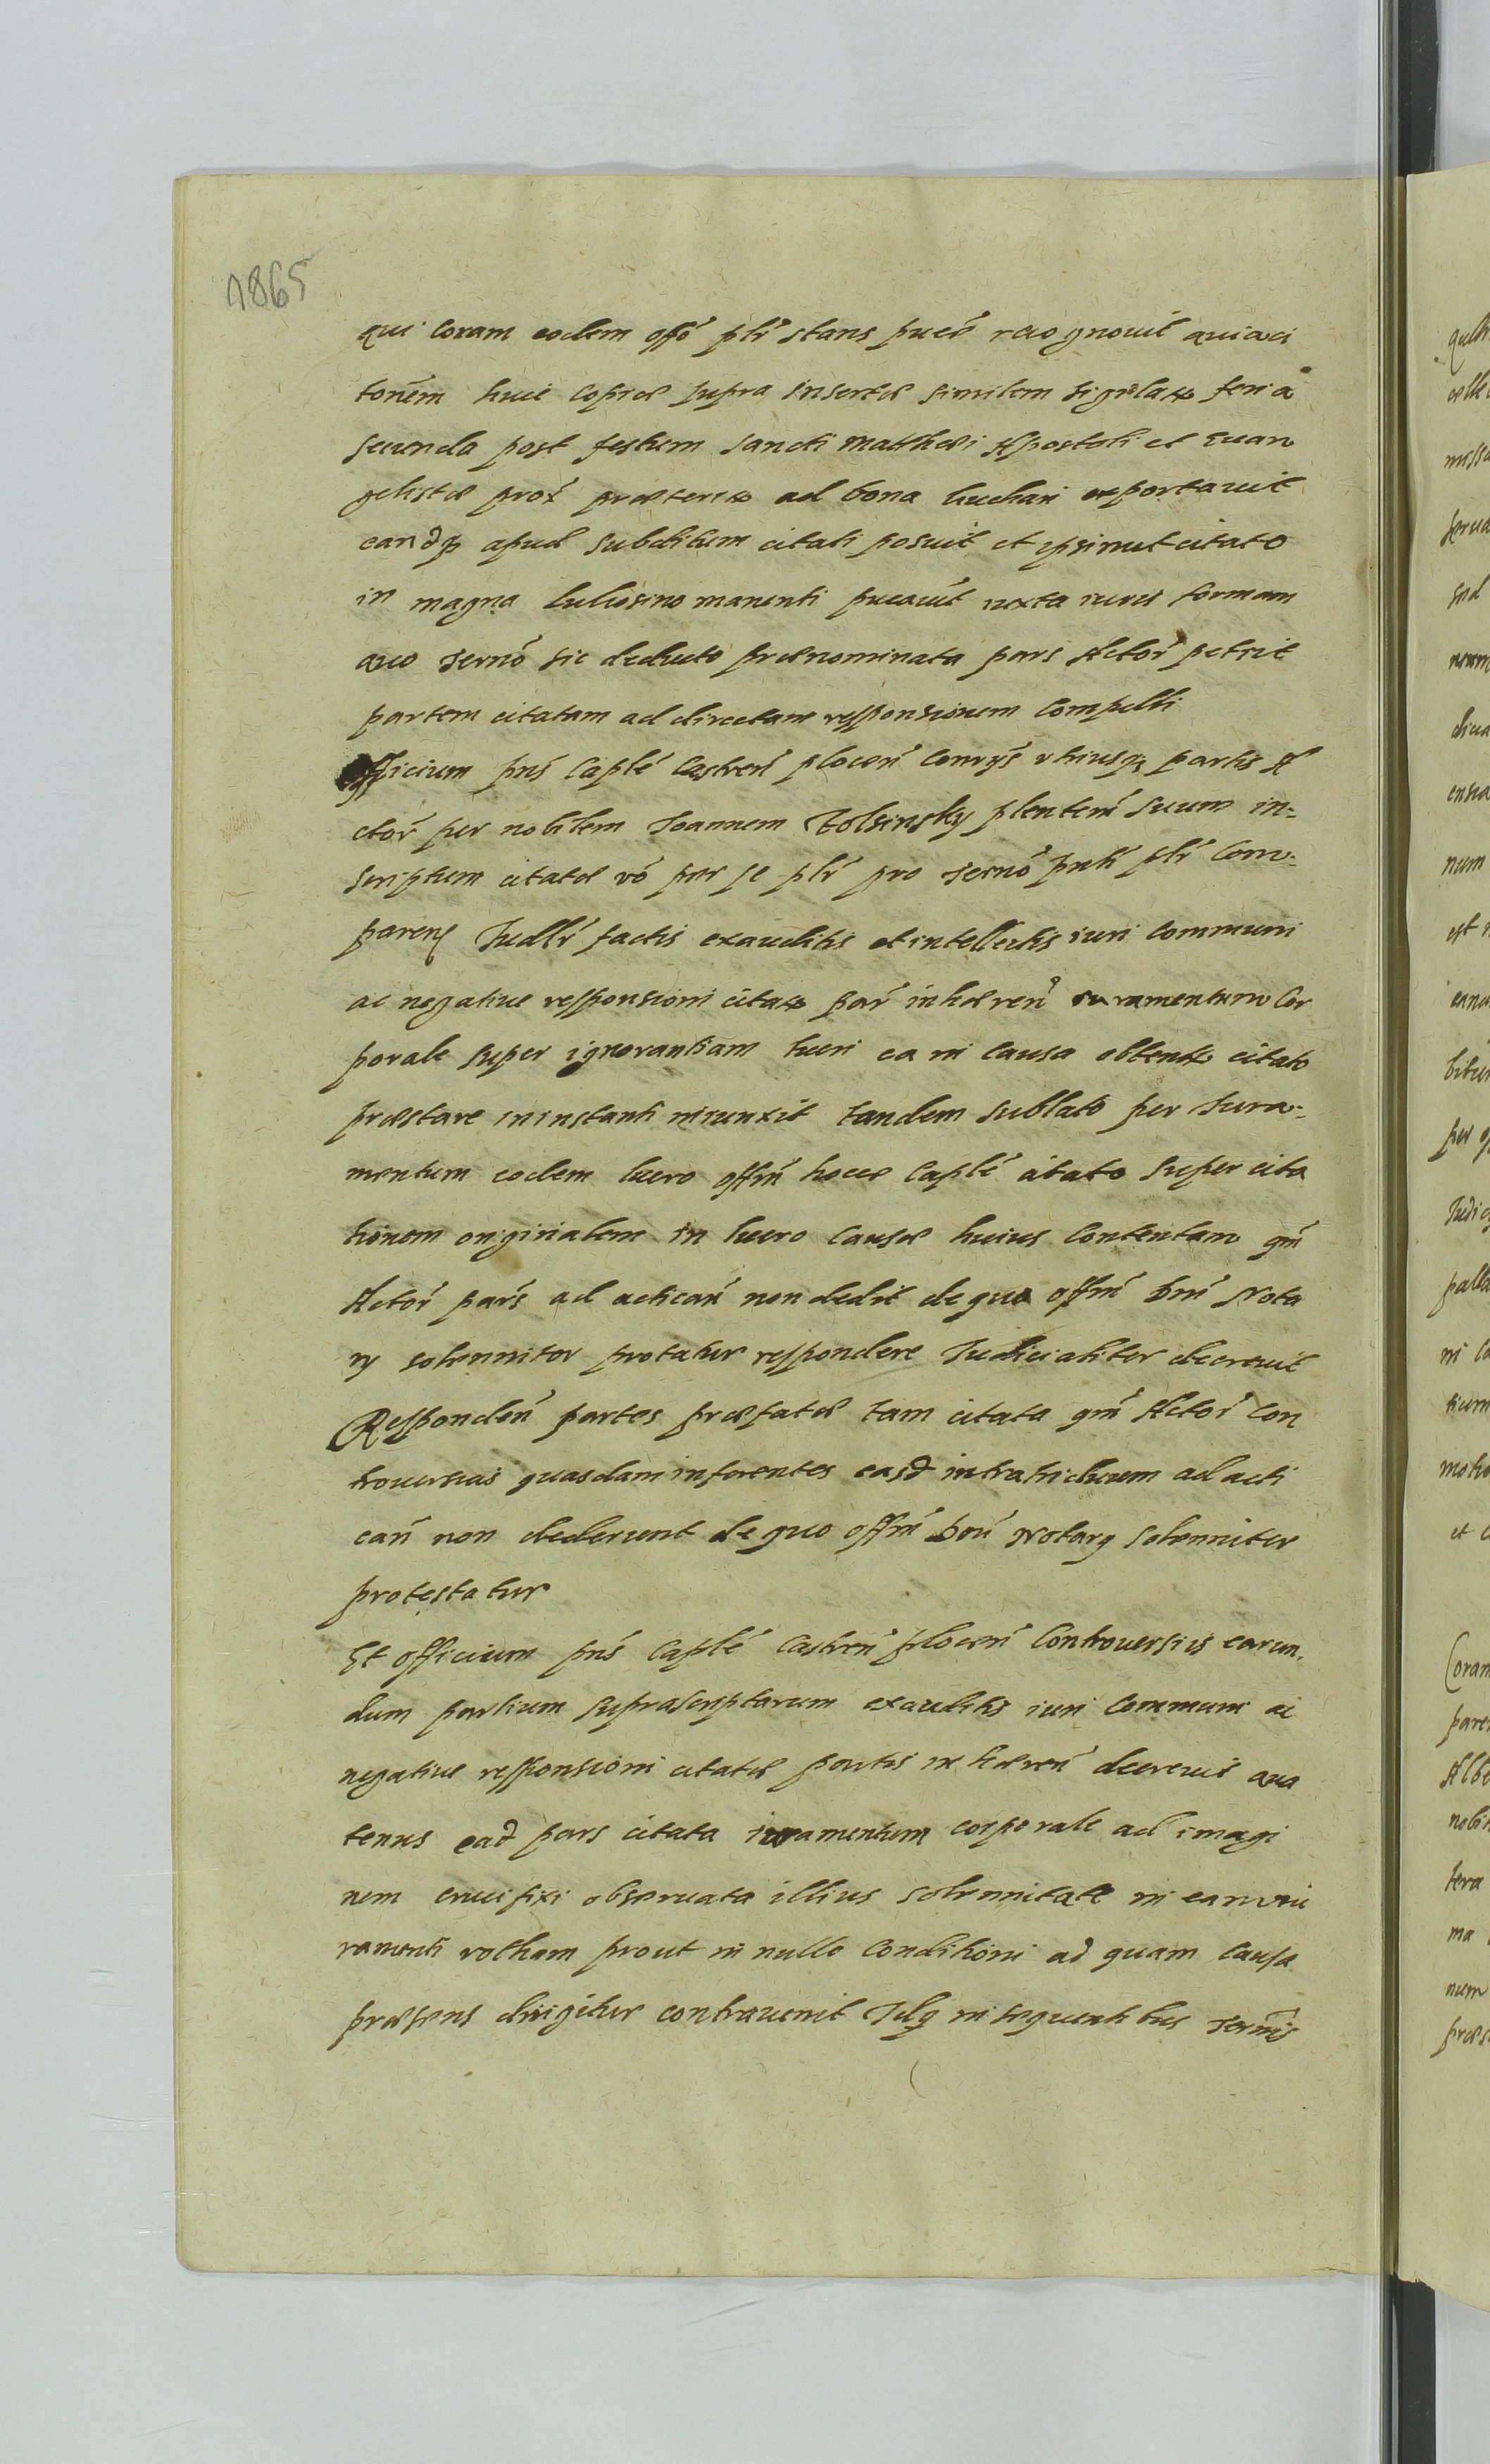 1865
qui coram eodem offó plr stans pueé recognouit quia ci
tonẽm huic copiæ supra insertæ similem sigillatæ feria
secunda post festum sancti Matthæi Apostoli et Euan
gelistæ prox præteritæ ad bona Luchan exportauit
eandqʒ apud subditum citati posuit et ipsimut citato
in magna manenti pucauit iuxta iuris formam
quo ternó sic deducto prænominata pars Actor petiit
partem citatam ad directam responsionem compelli
Officium pns Caplé Castren plocen Conuys vtriusqʒ partis A
ctor per nobilem Joannem Tolsinsky plentem suum in-
scriptum citatæ vó per se plr pro ternó pnti plr Com-
paren Judlr factis exauditis et intellectis iuri communi
ac negatiue responsioni citatæ par inhæren iuramentum Cor
porale super ignorantiam lucri ea in causa obtentæ citato
præstare in instanti iniunxit tandem sublato per Jura-
mentum eodem lucro offm hocce Caplé citato super cita
tionem originalem in lucro causæ huius contentam qm
Actor pars ad actican non dedit de quo offm brn Nota
ry solenniter protatur respondere Judicialiter decreuit
Responden partes præfatæ tam citata qm Actor con
trouersias quasdam inferentes easd intratriduum ad acti
can non dederunt de quo offm brn Notary solenniter
protestatur
Et officium pns Caplé Castren plocen controuersiis earun-
dum partium suprascriptarum exauditis iuri communi ac
negatiue responsioni citatæ partis inhæren decreuit qua
tenus ead pars citata iuramentum corporale ad imagi
nem crucifixi obseruata illius solennitate in eam iu
ramenti rotham prout in nullo conditioni ad quam causa
præsens dirigitur contrauenit Idqʒ in sequentibus ternis